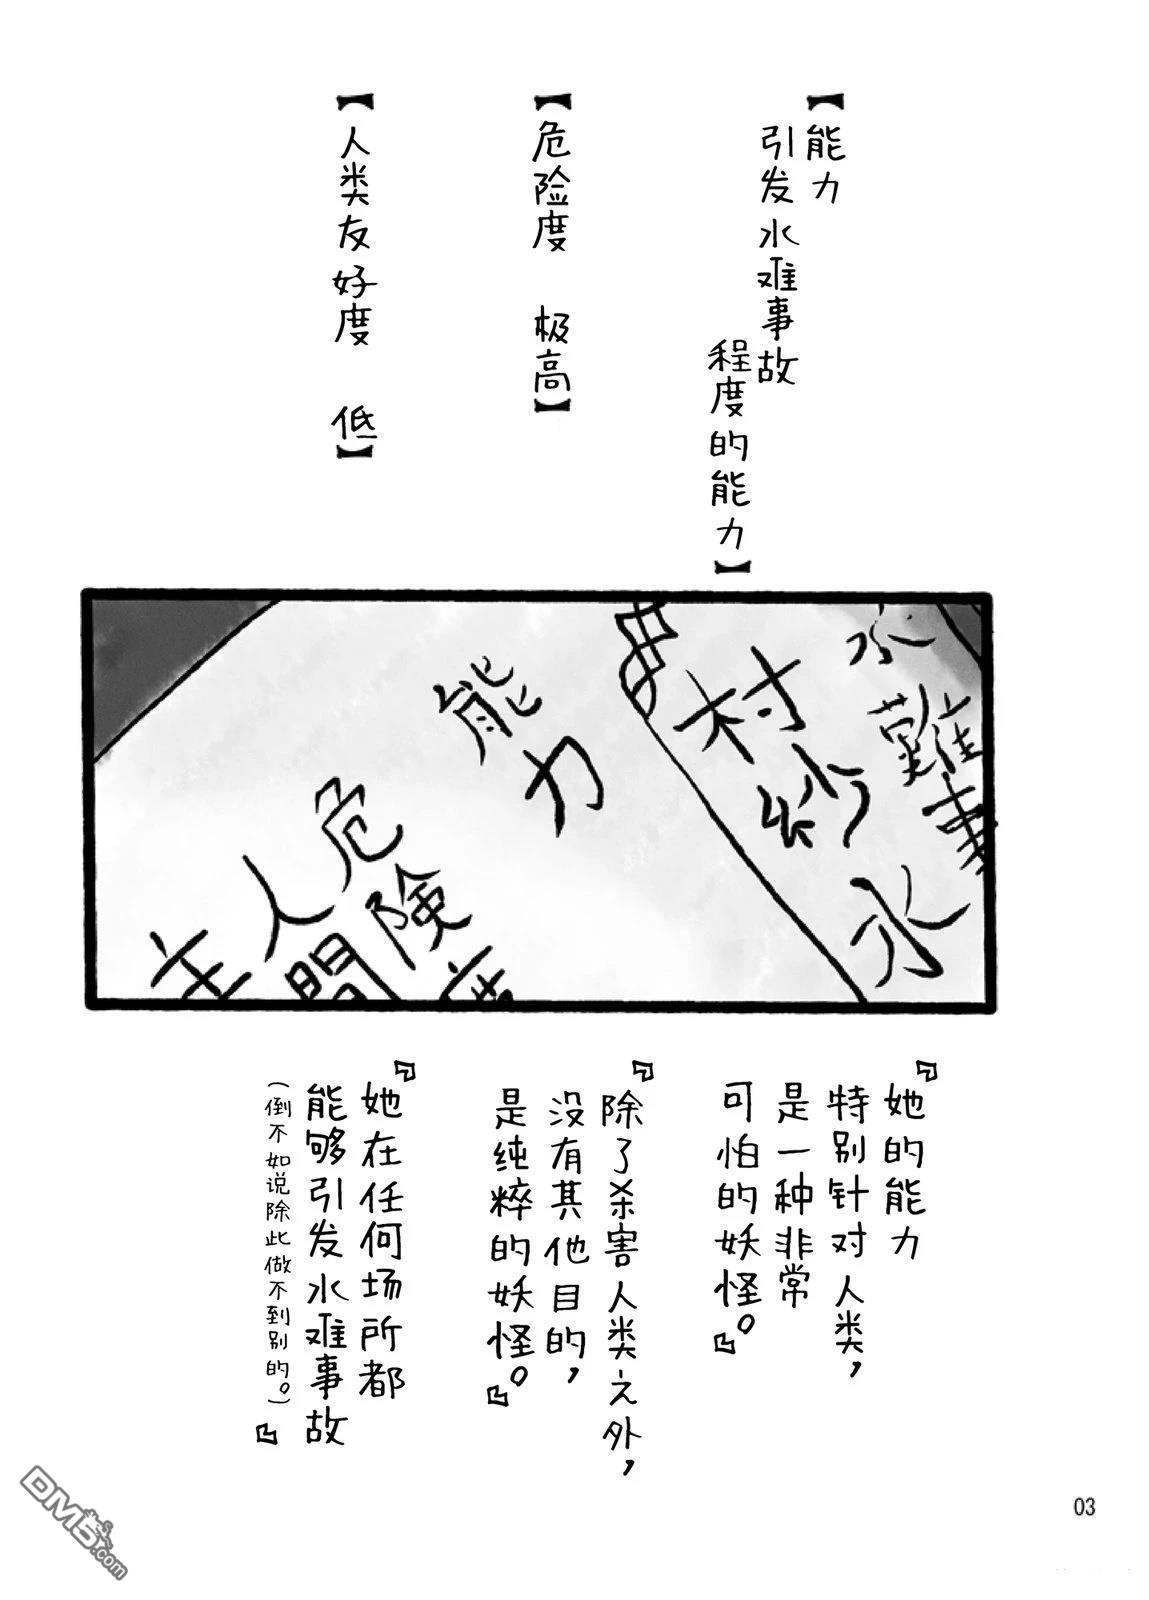 【能力
引发水难事故
程度的能力】
【危险度 极高】
【人类友好度 低】
水難事
村紗水
能力
危険度
人間
主
『她的能力
特别针对人类，
是一种非常
可怕的妖怪。』
『除了杀害人类之外，
没有其他目的，
是纯粹的妖怪。』
『她在任何场所都
能够引发水难事故
（倒不如说除此做不到别的。）』
03
DM5.com